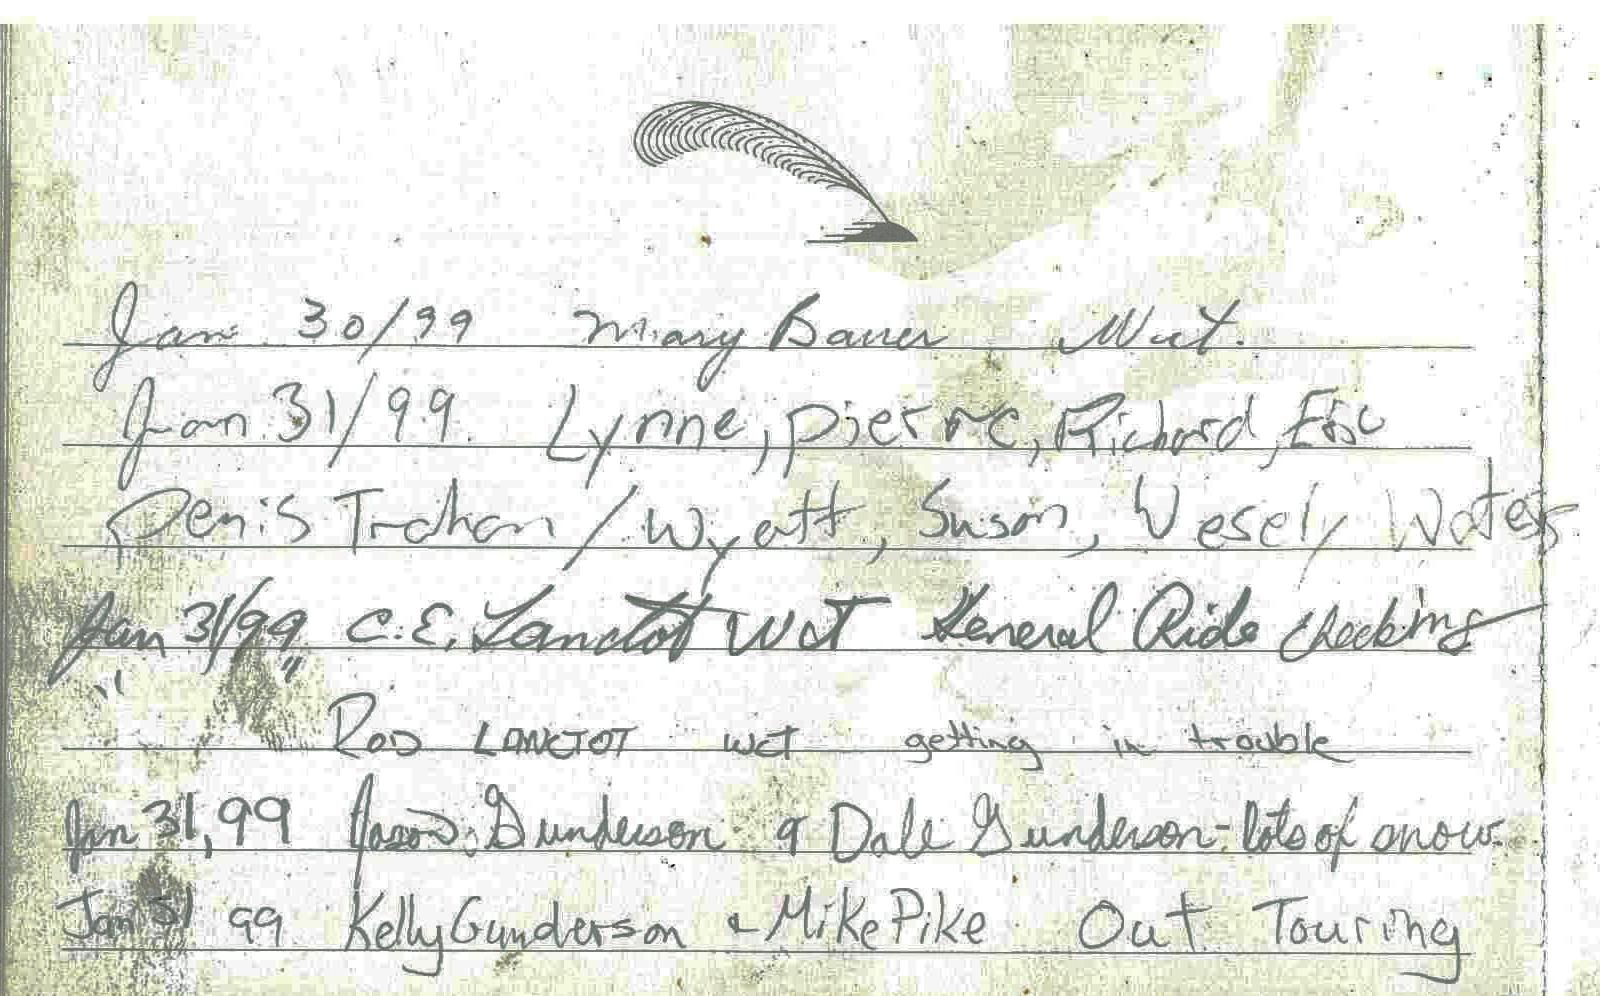 Jan. 30/99 Mary Bauer Wct.
Jan. 31/99 Lynne, Pierre, Richard, Eric
Denis Trahan / Wyatt, Susan, Wesely Waters
Jan 31/99 C.E. Lanctot WCT General Ride checking
" "
Rod LANCTOT WCT getting in trouble
Jan 31, 99 Jason Gunderson & Dale Gunderson - lots of snow.
Jan 31 99 Kelly Gunderson & Mike Pike Out Touring